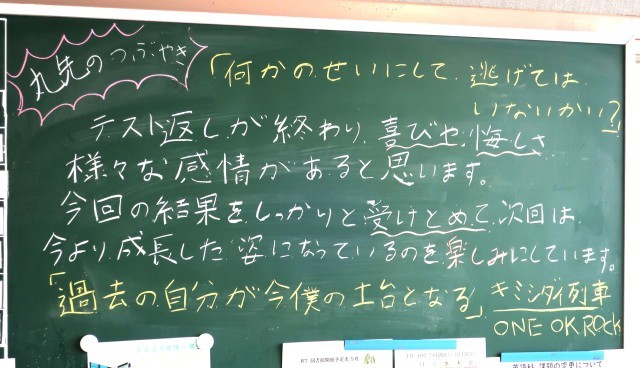 丸先のつぶやき
「何かのせいにして、逃げては
いないかい?」
テスト返しが終わり、喜びや、悔しさ
様々な感情があると思います。
今回の結果をしっかりと受けとめて、次回は、
今より成長した姿になっているのを楽しみにしています。
「過去の自分が今僕の土台となる」 キミシダイ列車
ONE OK ROCK
英語科 課題の変更について